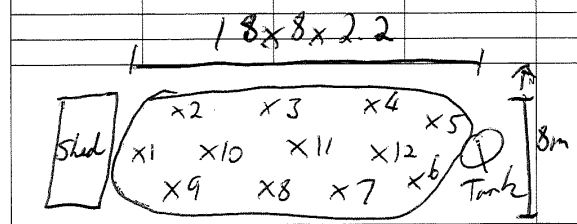 18x8x2.2
x2 x3 x4 x5
Shed x1 x10 x11 x12 8m
x9 x8 x7 x6 Tank